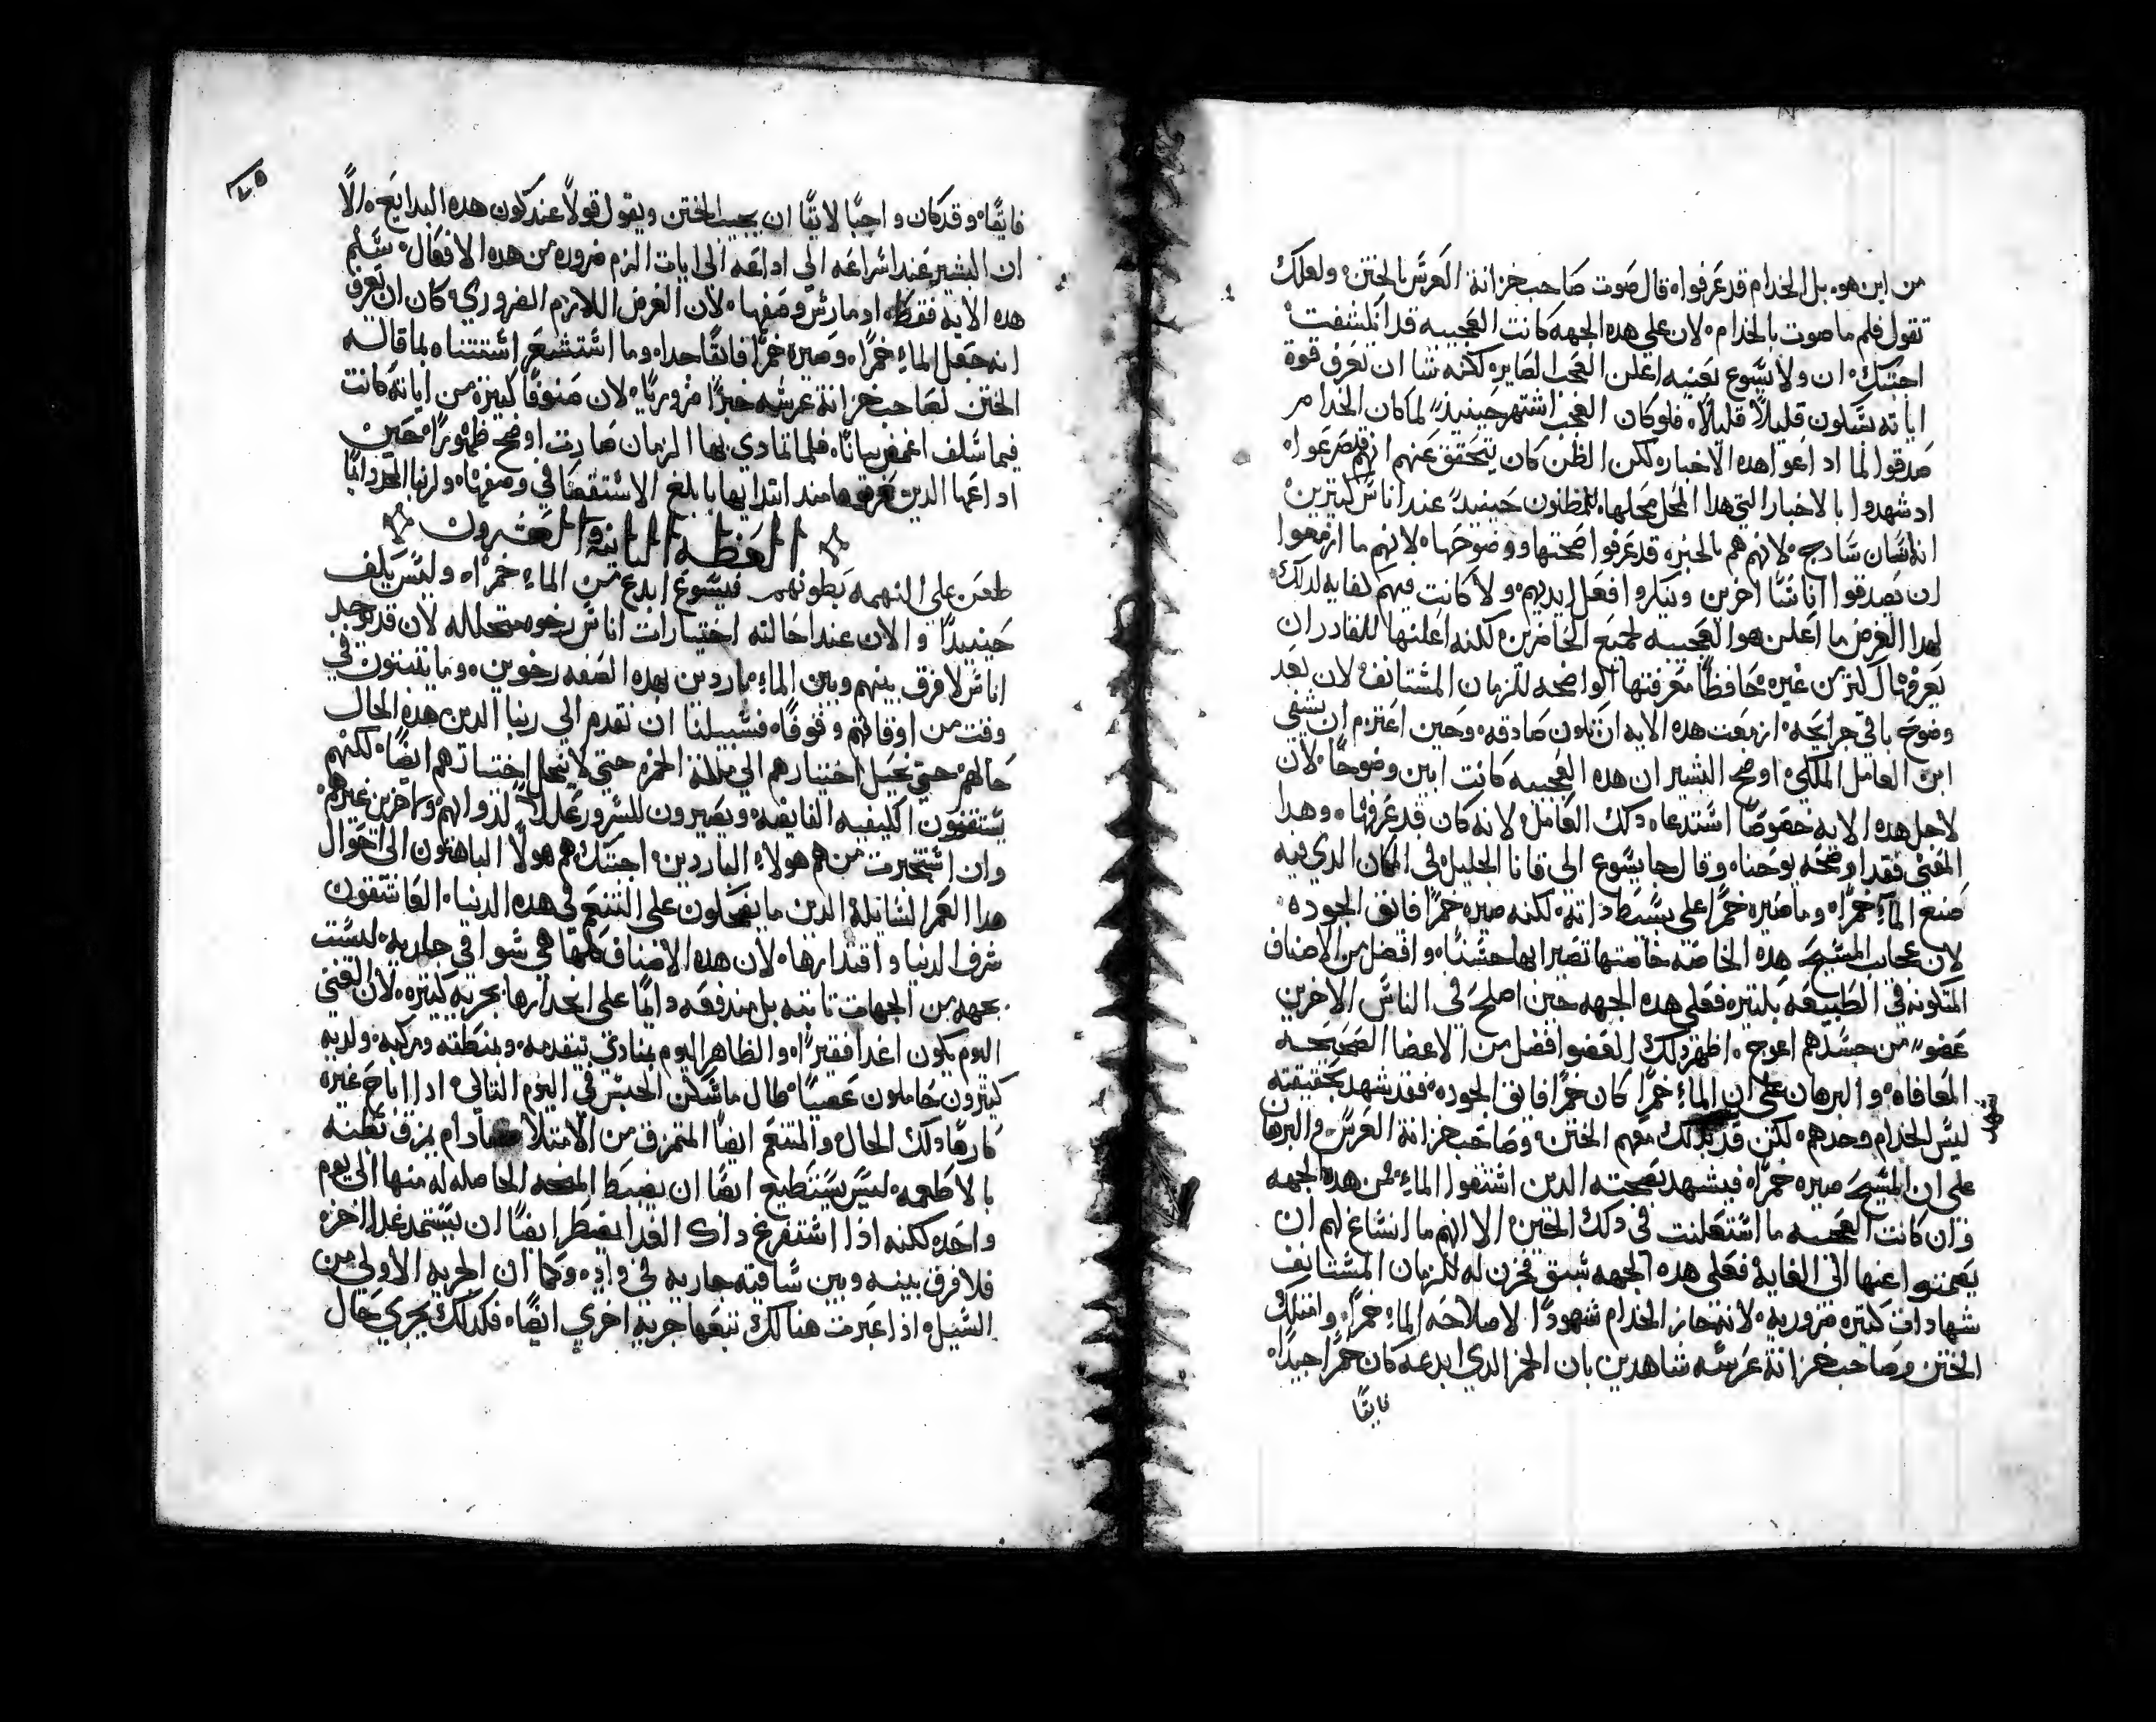 من اين هو، بل الخدام قد عرفوا، قال صوت صاحب خزانة العرس بالختن، ولعلك
تقول فلم ما صوت بالخدام، لان على هذه الجهه كانت العجيبه قد انكشفت
اجبتك، ان ولا يسوع بعينه اعلن العجب الصايره لكنه شا ان تعرف قوة
اياته تتكون قليلاً قليلاً، فلو كان العجب اشتهر حينيذٍ لما كان الخدام
صدقوا لما اداعوا هده الاخبار، لكن الظن كان يتحقق عنهم انهم قد صرعوا
اد شهدوا بالاخبار التي هدا المحل محلها، للمظنون حينيدٍ عند اناسٍ كتيرين
انه انسان سادج، لانهم هم بالخبره قد عرفوا صحتها ووضوحها، لانهم ما ازمعوا
ان يصدقوا اناسًا اخرين وينكروا افعل ايديهم، ولا كانت فيهم كفايه لدلك
لهدا الغرض ما اعلن هو العجيبه لجميع الحاضرين، لكنه اعلنها للقادر ان
يعرفها اكتر من غيره، حافظًا معرفتها الواضحه للزمان المستانف، لان بعد
وضوح باقي جرايحه، ازمعت هده الايه ان تكون صادقه، وحين اعتزم ان يشفي
ابن العامل الملكي، اوضح البشير ان هده العجيبه كانت ابين وضوحًا، لان
لاجل هده الايه خصوصًا استدعاه دلك العامل، لانه كان قد عرفها، وهدا
المعنى فقد اوضحه يوحنا، وقال جا يسوع الى قانا الجليل في المكان الدي فيه
صنع الماء خمرًا، وما صيره خمرًا على بسيط داته، لكنه صيره خمرًا فايق الجوده،
لان عجايب المسيح هده الخاصه خاصتها تصير ابها حسنًا، وافضل من الاصناف
المتكونه في الطبيعه بكتير، فعلى هده الجهه حين اصلح في الناس الاخرين
عضوًا من جسدهم اعوج، اظهر دلك العضو افضل من الاعضا الصحيحه
المعافاه، والبرهان على ان الماء خمرًا كان خمرًا فايق الجوده، فقد شهد بحقيقته
ليس الخدام وحدهم، لكن قد بدلك معهم الختن، وصاحب خزانة العرس، والبرهان
على ان المسيح صيره خمرًا، فيشهد بصحته الدين استقوا الماء، فمن هده الجهه
وان كانت العجيبه ما استعلنت في دلك الحين، الا انهم ما انساغ لهم ان
يصمتوا عنها الى الغايه، فعلى هده الجهه سبق فخزن له للزمان المستانف
شهادات كتيره ضروريه، لانه حاز الخدام شهودًا لاصلاحه الماء خمرًا، وامتلك
الختن وصاحب خزانة عرسه شاهدين بان الخمر الدي ابدعه كان خمرًا جيدًا،
فايقًا
فايقًا، وقد كان واجبًا لايقًا ان يجيب الختن ويقول قولاً عند كون هده البدايع، الا
ان البشير عند اسراعه الى اداعه الى ايات الزم ضروره من هده الافعال، سلم
هده الايه فقط، اد مارس وصفها، لان الغرض اللازم الضروري، كان ان يعرف
انه جعل الماء خمرًا، وصيره خمرًا فايقًا جدا، وما استشعر استتناه بما قاله
الختن لصاحب خزانة عرسه خبرًا ضروريًا، لان صنوفًا كتيره من اياته كانت
فيما سلف اغمض بيانًا، فلما تمادى بها الزمان صارت اوضح ظهورًا، حين
اداعها الدين عرفوها مند ابتدايها بابلغ الاستقصا في وصفها، ولربنا المجد دايمًا
العظه التانيه والعشرون
طعن على النهمه بطونهم فيسوع ابدع من الماء خمرًا، وليس يكف
حينيدًا والان عند احالته اختيارات اناسٍ رخوه متحلله لان قد توجد
اناس لا فرق بينهم وبين الماء، باردين بهده الصفه رخوين، وما يتبتون في
وقت من اوقاتهم وقوفًا، فسبيلنا ان نقدم الى ربنا الدين هده الحال
حالهم، حتى يحيل اختيارهم الى متانة الخمره، حتى لا ينحل اختيارهم ايضًا، لكنهم
يستقنون الكيفيه القابضه، ويصيرون للسرور عللاً، لدواتهم، ولاخرين غيرهم،
وان استخبرت من هم هولاء الباردين، اجبتك هم هولاء الباهتون الى احوال
هدا العمر السايله، الدين ما يضحكون على التنعم في هده الدنيا، العاشقون
شرف الدنيا واقتدارها، لان هده الاصناف كلها هي سواقي جاريه، ليست
بجهه من الجهات تابته، بل مندفعه دايمًا على انحدارها بجريه كتيره، لان الغني
اليوم يكون اغدا فقيرًا، والظاهر اليوم بمنادي تتقدمه، ومنطقته ومركبه، ولديه
كتيرون حاملون عصيًا، طال ما سكن الحبس في اليوم التالي، ادا اباح غيره
كارهًا دلك الحال، والمتنعم ايضًا المتمزق من الامتلا ما دام يمزق بطنه
بالاطعمه، ليس يستطيع ايضًا ان يضبط المنحه الحاصله له منها الى يوم
واحد، لكنه ادا استفرغ داك الغدا يضطر ايضًا ان يستمد غدا اخر،
فلا فرق بينه وبين ساقيه جاريه في واد، وكما ان الجريه الاولى من
السيل، اد اعبرت هنالك تتبعها جرية اخرى ايضًا، فكدلك يجري حال